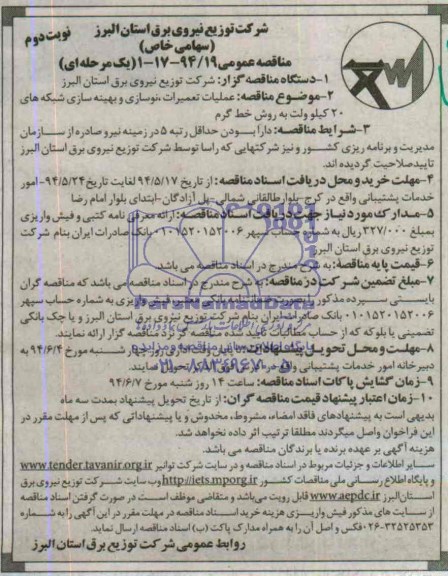 شرکت توزیع نیروی برق استان البرز
(سهامی خاص)
نوبت دوم
مناقصه عمومی ۹۴/۱۹-۱۷-۱ (یک مرحله ای)
۱-دستگاه مناقصه گزار: شرکت توزیع نیروی برق استان البرز
۲-موضوع مناقصه: عملیات تعمیرات، نوسازی و بهینه سازی شبکه های
۲۰ کیلو ولت به روش خط گرم
۳-شرایط مناقصه: دارا بودن حداقل رتبه ۵ در زمینه نیرو صادره از سازمان
مدیریت و برنامه ریزی کشور و نیز شرکتهایی که راسا توسط شرکت توزیع نیروی برق استان البرز
تایید صلاحیت گردیده اند.
۴-مهلت خرید و محل دریافت اسناد مناقصه: از تاریخ ۹۴/۵/۱۷ لغایت تاریخ ۹۴/۵/۲۴- امور
خدمات پشتیبانی واقع در کرج-بلوار طالقانی شمالی-پل آزادگان-ابتدای بلوار امام رضا
۵-مدارک مورد نیاز جهت دریافت اسناد مناقصه: ارائه معرفی نامه کتبی و فیش واریزی
بمبلغ ۳۲۷/۰۰۰ ریال به شماره حساب سپهر ۰۱۰۱۵۲۰۱۵۲۰۰۶ بانک صادرات ایران بنام شرکت
توزیع نیروی برق استان البرز
۶-قیمت پایه مناقصه: به شرح مندرج در اسناد مناقصه می باشد.
۷-مبلغ تضمین شرکت در مناقصه: به شرح مندرج در اسناد مناقصه می باشد که مناقصه گران
بایستی سپرده مذکور را بصورت ضمانتنامه بانکی، فیش واریزی به شماره حساب سپهر
۰۱۰۱۵۲۰۱۵۲۰۰۶ بانک صادرات ایران بنام شرکت توزیع نیروی برق استان البرز و یا چک بانکی
تضمینی یا بلوکه که از حساب مطالبات تایید شده مناقصه گر نزد مناقصه گزار ارائه نمایند.
۸-مهلت و محل تحویل پیشنهادات: تا پایان وقت اداری روز چهارشنبه مورخ ۹۴/۶/۴ به
دبیرخانه امور خدمات پشتیبانی واقع در تحویل نمایند.
۹-زمان گشایش پاکات اسناد مناقصه: ساعت ۱۴ روز شنبه مورخ ۹۴/۶/۷
۱۰-زمان اعتبار پیشنهاد قیمت مناقصه گران: از تاریخ تحویل پیشنهاد بمدت سه ماه
بدیهی است به پیشنهادهای فاقد امضاء، مشروط، مخدوش و یا پیشنهاداتی که پس از مهلت مقرر در
این فراخوان واصل میگردند مطلقا ترتیب اثر داده نخواهد شد.
هزینه آگهی بر عهده برنده یا برندگان مناقصه می باشد.
سایر اطلاعات و جزئیات مربوط در اسناد مناقصه و در سایت شرکت توانیر www.tender.tavanir.org.ir
و پایگاه اطلاع رسانی ملی مناقصات کشور http://iets.mporg.ir وب سایت شرکت توزیع نیروی برق
استان البرز www.aepdc.ir قابل رویت می باشد و متقاضی موظف است در صورت گرفتن اسناد مناقصه
از سایت های مذکور فیش واریزی هزینه خرید اسناد مناقصه در مهلت مقرر در این آگهی را به شماره
۰۲۶-۳۳۵۲۵۳۵۳ فکس و اصل آن را به همراه مدارک پاکت (ب) اسناد مناقصه ارسال نماید.
روابط عمومی شرکت توزیع برق استان البرز
پایگاه اطلاع رسانی مناقصه و مزایده
۰۲۱-۸۸۳۴۹۶۷۰-۵